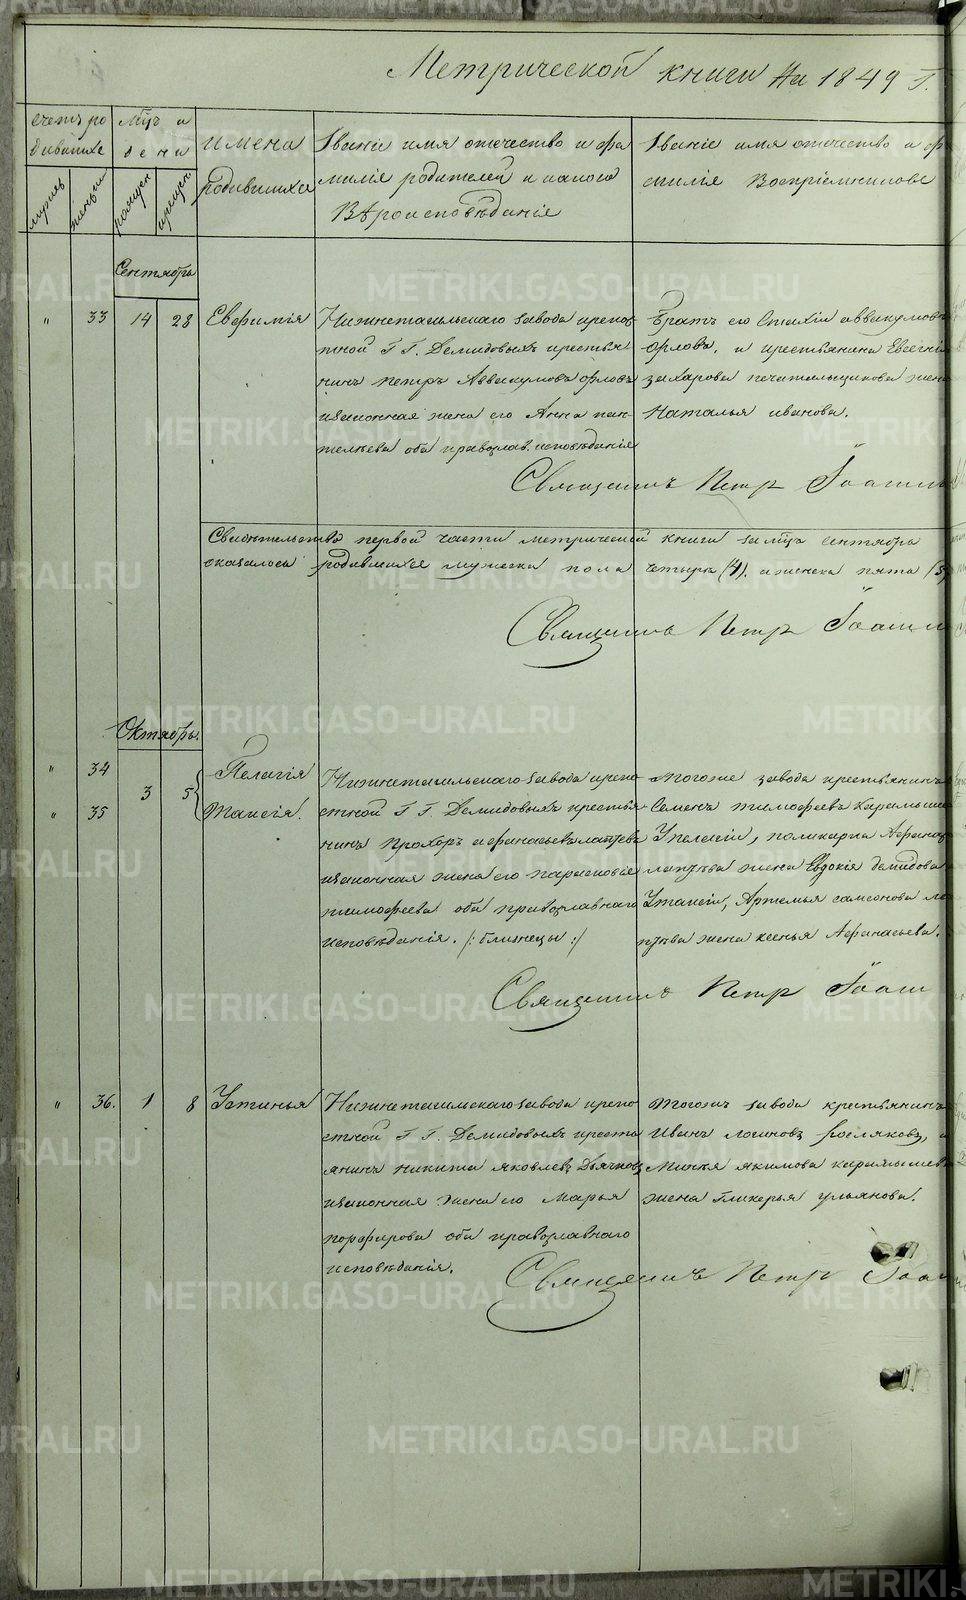 Метрической книги На 1849 Г.
счетъ ро
дившихся
мужескъ
женскъ
Мѣц. и
дени
рожден.
крещен.
имена
родившихся
Званіе имя отчество и фа
милія родителей и какого
Вѣроисповѣданіе
Званіе имя отчество и ф
милія Воспріемниковъ
Сентябрь
" 33 14 28 Евфимія
Нижнетагильскаго завода крепо
стной Г.Г. Демидовыхъ крестья
нинъ Петръ Аввакумовъ орловъ
законная жена его Анна пан
телѣева оба православ. исповѣданія
Братъ его Стахій аввакумовъ
Орловъ. и крестьянина Евгені
захарова печатальщикова жена
Наталья иванова.
Священникъ Петръ Іоанн
Свидѣтельство первой части метрической книги за мѣц. сентябрь
оказалось родившихся мужеска пола четыре (4). а женска пять (5)
Священникъ Петръ Іоанн
Октябрь.
" 34
" 35
3 5
Пелагія
Таисія.
Нижнетагильскаго завода крепо
стной Г.Г. Демидовыхъ крестья
нинъ Прохоръ афанасьевъ лаптевъ
законная жена его парасковія
тимофеева оба православнаго
исповѣданія. /: близнецы :/
Тогоже завода крестьянинъ
Семенъ тимофеевъ Карамыше
У пелагіи, поликарпа Афанас
лаптева жена Евдокія демидова
У таисіи, Артемья самсонова ла
птева жена ксенья Афанасьева.
Священникъ Петръ Іоан
" 36. 1 8 Устинья
Нижнетагильскаго завода крепо
стной Г.Г. Демидовыхъ кресть
янинъ никита яковлевъ Дьячковъ
законная жена его Марья
порфирова оба православнаго
исповѣданія.
Тогожъ завода крестьянинъ
Иванъ логиновъ росляковъ, и
якимова карамышева
жена Гликерья ульянова.
Священникъ Петръ Іоан
METRIKI.GASO-URAL.RU